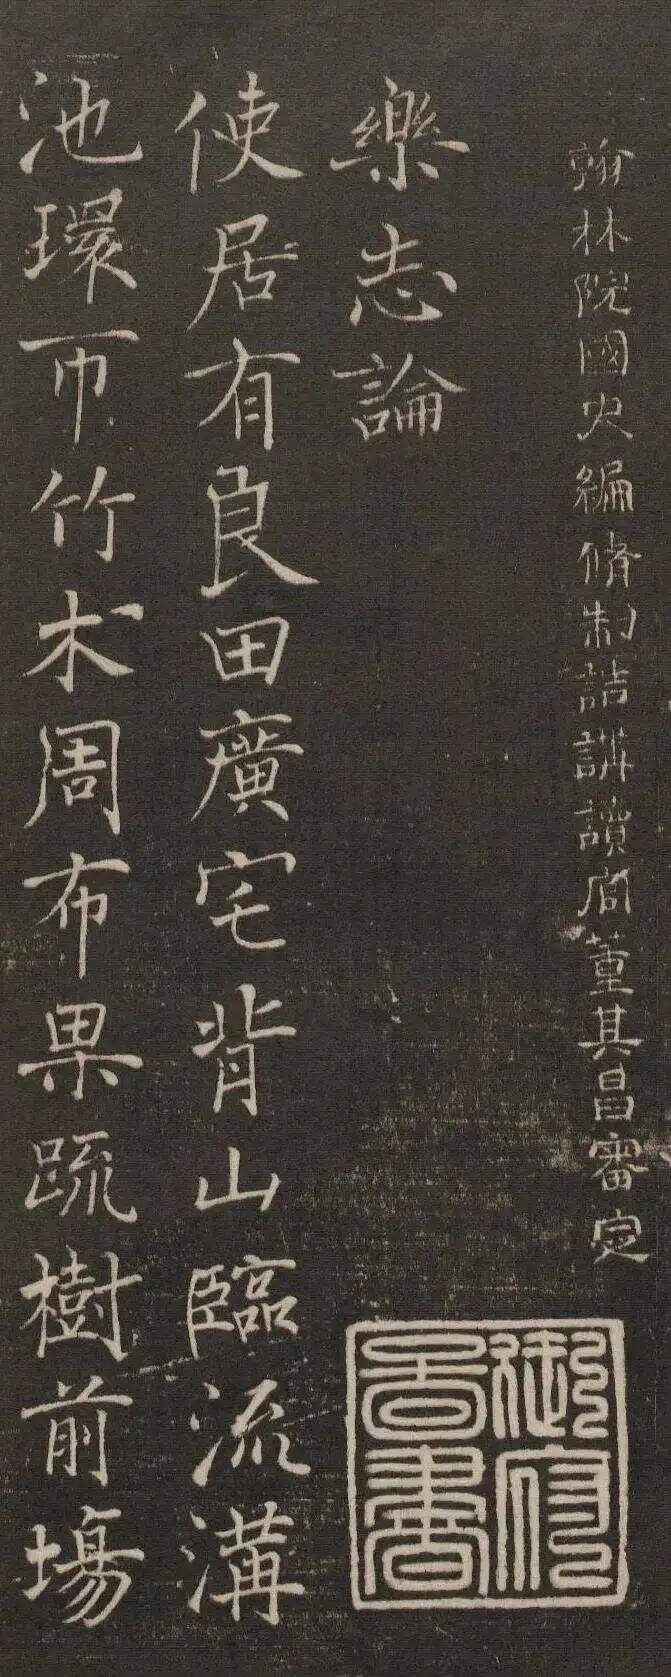 翰林院國史編脩制誥講讀官董其昌審定
御府圖書
樂志論
使居有良田廣宅背山臨流溝
池環帀竹术周布果疏樹前場